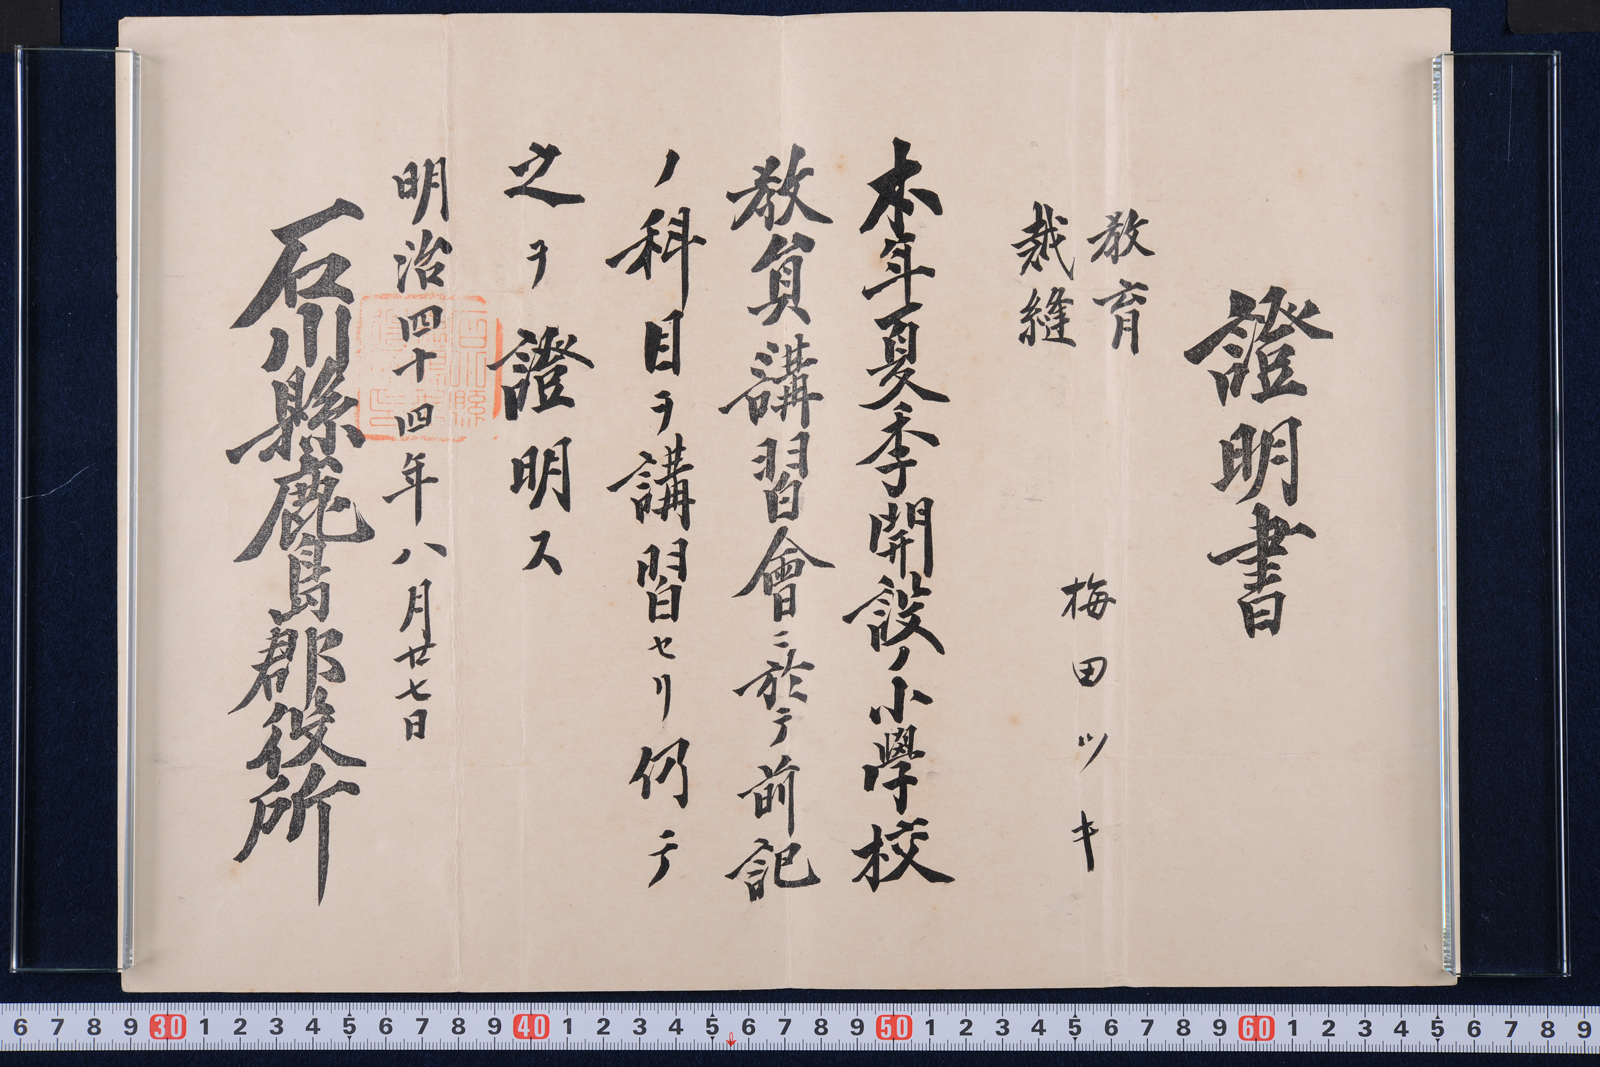 證明書
教育
裁縫
梅田ツキ
本年夏季開設ノ小學校
教員講習會ニ於テ前記
ノ科目ヲ講習セリ仍テ
之ヲ證明ス
明治四十四年八月廿七日
石川縣鹿島郡役所
6 7 8 9 30 1 2 3 4 5 6 7 8 9 40 1 2 3 4 5 6 7 8 9 50 1 2 3 4 5 6 7 8 9 60 1 2 3 4 5 6 7 8 9